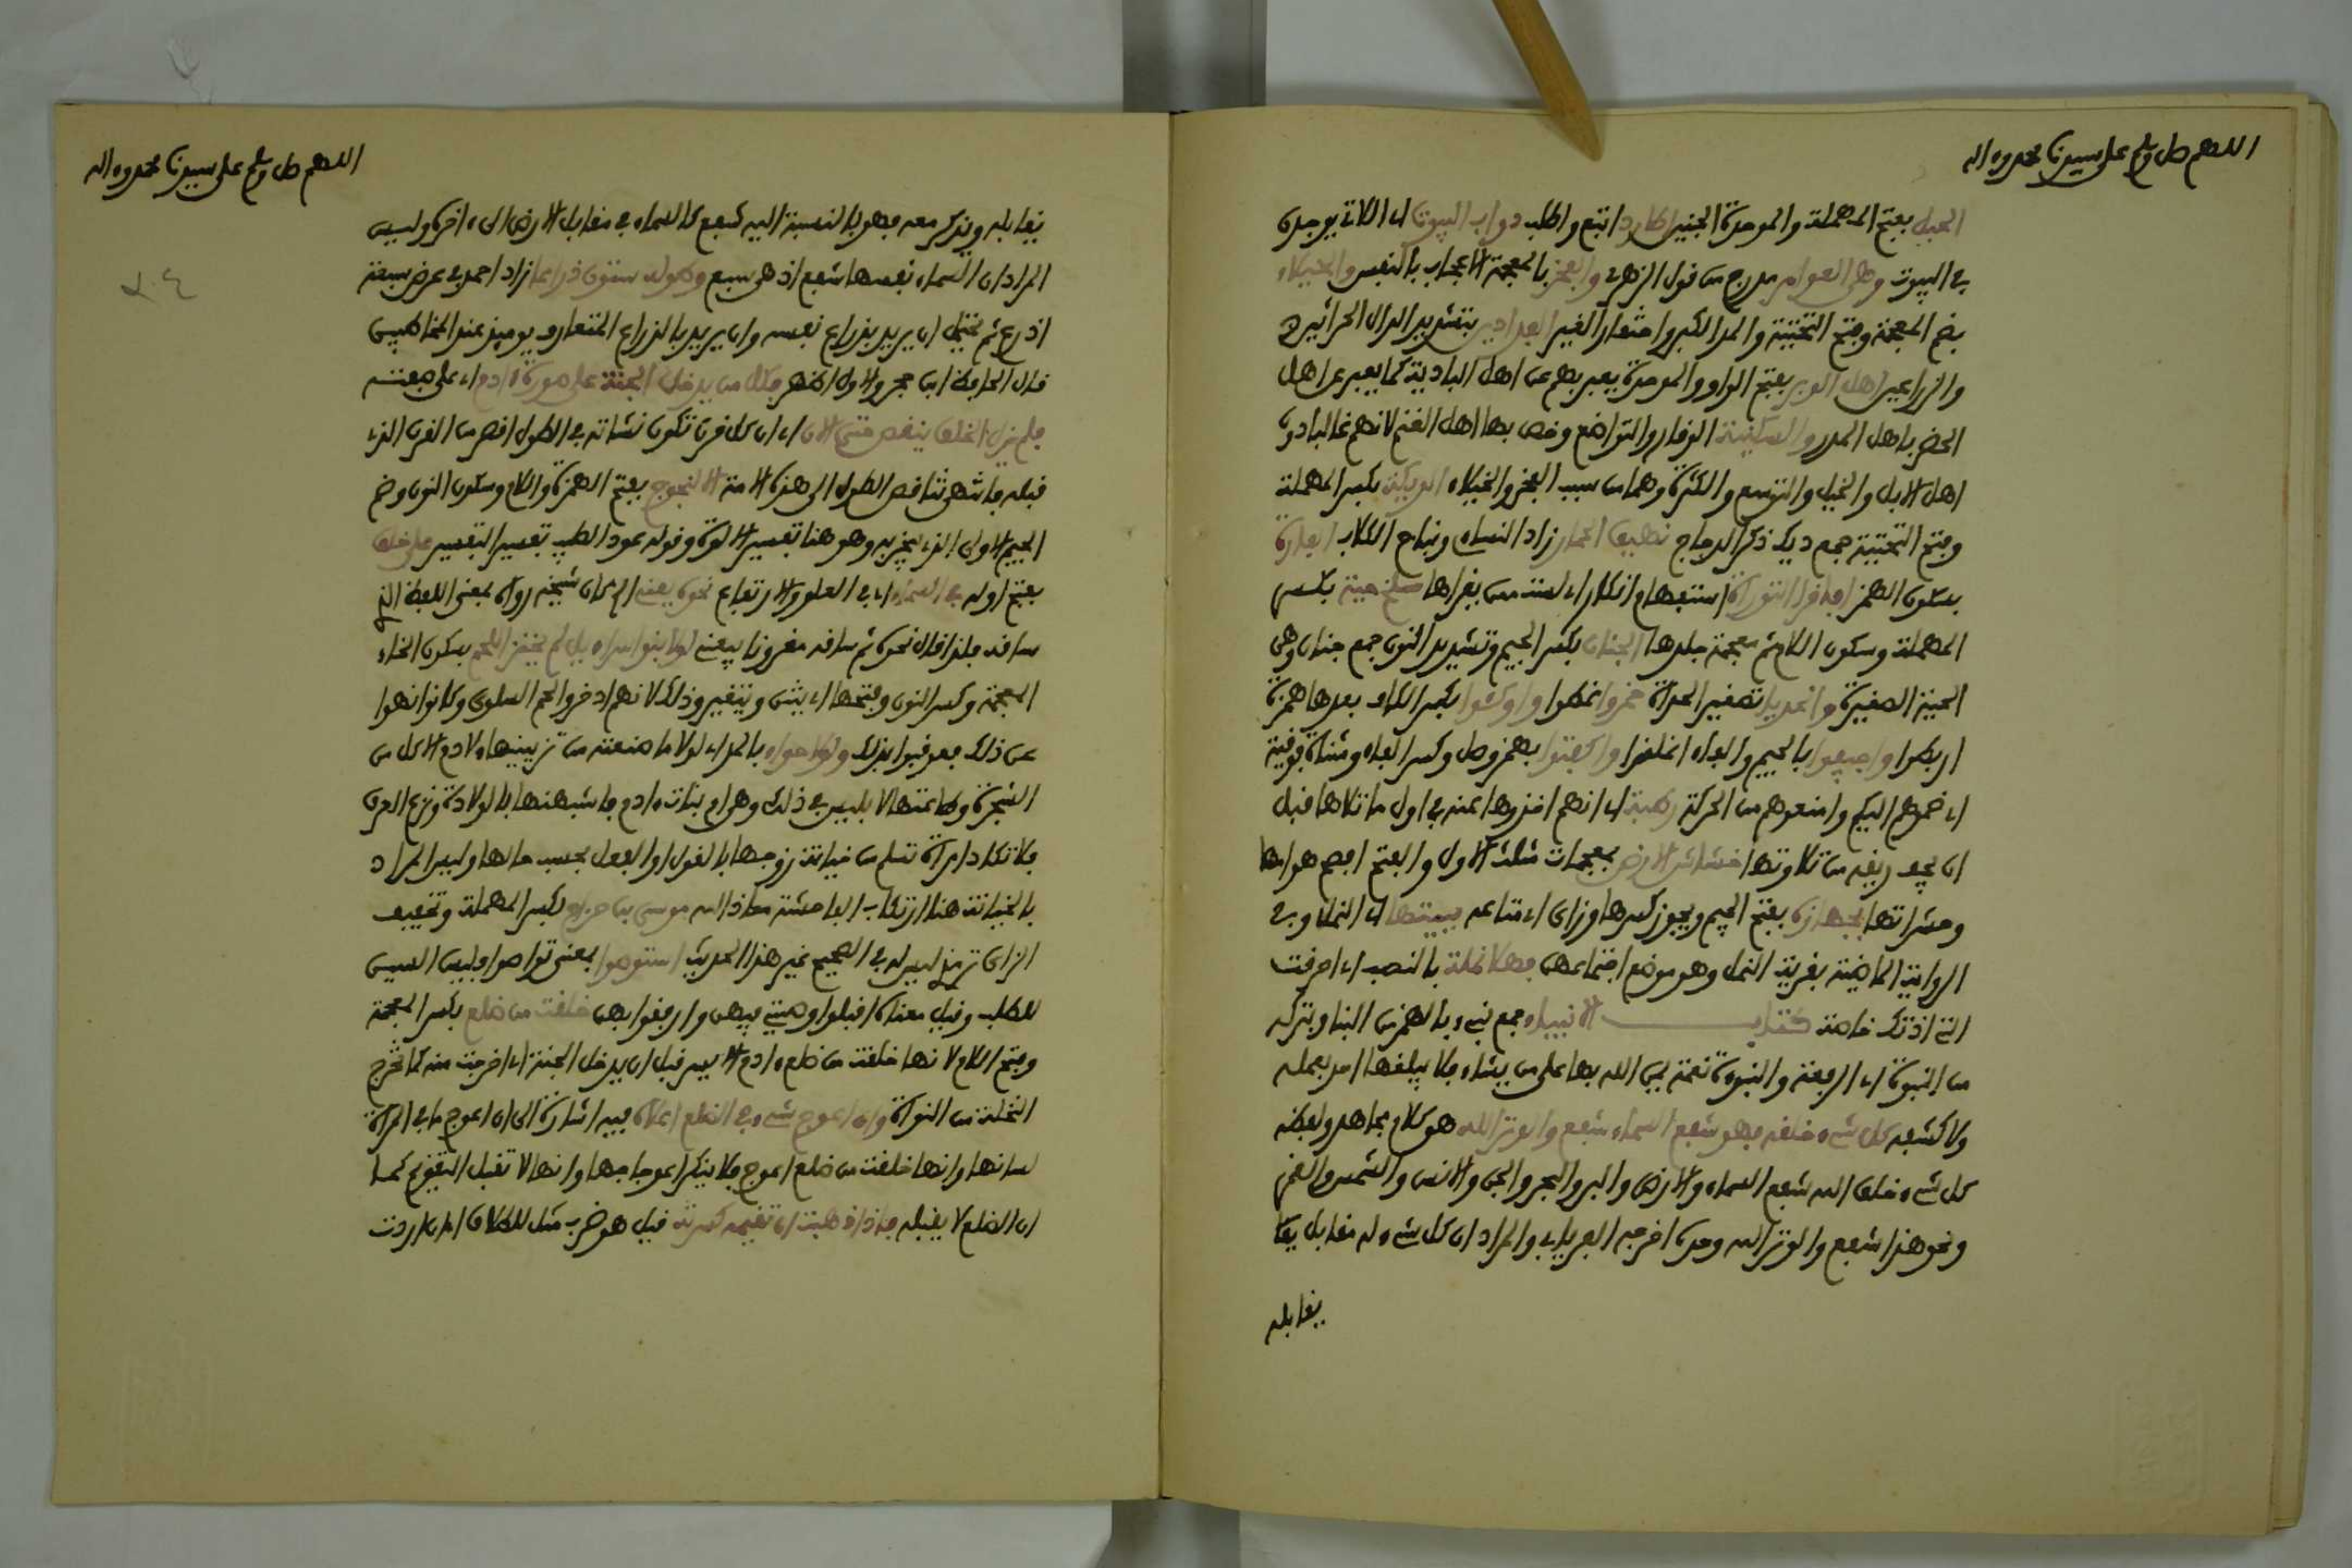 اللهم صل وسلم على سيدنا محمد وءاله
الحبل بفتح المهملة والموحدة الجنين اطارد اتبع واطلب دواب البيوت اي اللاتي يوجدن
في البيوت وهي العوامر مدرج من قول الزهري والفخر بالمعجمة الاعجاب بالنفس والخيلاء
بضم المعجمة وفتح التحتية والمد الكبر واحتقار الغير الفدادين بتشديد الدال الحراثين
والزراعين اهل الوبر بفتح الواو والموحدة يعبر بهم عن اهل البادية كما يعبر عن اهل
الحضر باهل المدر والسكينة الوقار والتواضع وخص بها اهل الغنم لانهم غالبا دون
اهل الابل والخيل والتوسع والكثرة وهما من سبب الفخر والخيلاء الديكة بكسر المهملة
وفتح التحتية جمع ديك ذكر الدجاج نهيق الحمار زاد النساء ونباح الكلاب الفارة
بسكون الهمز افاقرا التوراة استفهام انكار اي لست ممن يقراها سلخ حية بكسر
المهملة وسكون اللام ثم معجمة جلدها الجنان بكسر الجيم وتشديد النون جمع جنان وهي
الحية الصغيرة والحديا تصغير الحداة خمروا غطوا واوكئوا بكسر الكاف بعدها همزة
اربطوا واجيفوا بالجيم والفاء اغلقوا واكفتوا بهمز وصل وكسر الفاء ومثناة فوقية
اي ضموهم اليكم وامنعوهم من الحركة رطبة اي انهم اخذوها عنه في اول ما تلاها قبل
ان يجف ريقه من تلاوتها خشاش الارض بمعجمات مثلث الاول والفتح افصح هوامها
وحشراتها بجهازه بفتح الجيم ويجوز كسرها وزاي اي متاعه ببيتها اي النمل وفي
الرواية الماضية بقرية النمل وهو موضع اجتماعهن فهلا نملة بالنصب اي احرقت
التي اذتك خاصة كتاب الانبياء جمع نبيء بالهمز من النبا وبتركه
من النبوة اي الرفعة والنبوة نعمة يمن الله بها على من يشاء فلا يبلغها احد بعمله
ولا كشفه كل شيء خلقه فهو شفع السماء شفع والوتر الله هو كلام مجاهد ولفظه
كل شيء خلق الله شفع السماء والارض والبر والبحر والجن والانس والشمس والقمر
ونحو هذا شفع والوتر الله وحده اخرجه الفريابي والمراد ان كل شيء له مقابل يقا
يقابله
اللهم صل وسلم على سيدنا محمد وءاله
يقابله ويذكر معه فهو بالنسبة اليه شفع كالسماء في مقابل الارض الى ءاخره وليس
المراد ان السماء نفسها شفع اذ هي سبع وطوله ستون ذراعا زاد احمد في عرض سبعة
اذرع ثم يحتمل ان يريد بذراع نفسه وان يريد بالذراع المتعارف يوميذ عند المخاطبين
قال الحافظ ابن حجر والاول اظهر فكل من يدخل الجنة على صورة ءادم اي على صفته
فلم يزل الخلق ينقص حتى الان اي ان كل قرن تكون نشاته في الطول اقصر من القرن الذي
قبله فانتهى تناقص الطول الى هذه الامة الالنجوج بفتح الهمزة واللام وسكون النون وضم
الجيم الاولى الذي يبخر به وهو هنا تفسير الالوة وقوله عود الطيب تفسير التفسير على خلق
بفتح اوله في السماء اي في العلو والارتفاع نحوه يعني لم كان شيخه رواه بمعنى اللفظ الذي
ساقه فلذا قال نحوه ثم ساقه مقرونا يعني لولا بنو اسراءيل لم يخنز اللحم بسكون الخاء
المعجمة وكسر النون وفتحها اي ينتن ويتغير وذلك لانهم ادخروا لحم السلوى وكانوا نهوا
عن ذلك فعوقبوا بذلك ولولا حواء بالمد اي لولا ما صنعته من تزيينها لادم الاكل من
الشجرة وطاعتها لابليس في ذلك وهي ام بنات ءادم فاشبهنها بالولادة ونزع العرق
فلا تكاد امراة تسلم من خيانة زوجها بالقول او الفعل بحسب حالها وليس المراد
بالخيانة هنا ارتكاب الفاحشة معاذ الله موسى بن حزام بكسر المهملة وتخفيف
الزاي ترمذي ليس له في الصحيح غير هذا الحديث استوصوا بمعنى تواصوا وليس السين
للطلب وقيل معناه اقبلوا وصيتي فيهن وارفقوا بهن خلقت من ضلع بكسر المعجمة
وفتح اللام لانها خلقت من ضلع ءادم الايسر قبل ان يدخل الجنة اي اخرجت منه كما تخرج
النخلة من النواة وان اعوج شيء في الضلع اعلاه فيه اشارة الى ان اعوج ما في المراة
لسانها وانها خلقت من ضلع اعوج فلا ينكر اعوجاجها وانها لا تقبل التقويم كما
ان الضلع لا يقبله فاذا ذهبت ان تقيمه كسرته قيل هو ضرب مثل للطلاق اي ان اردت